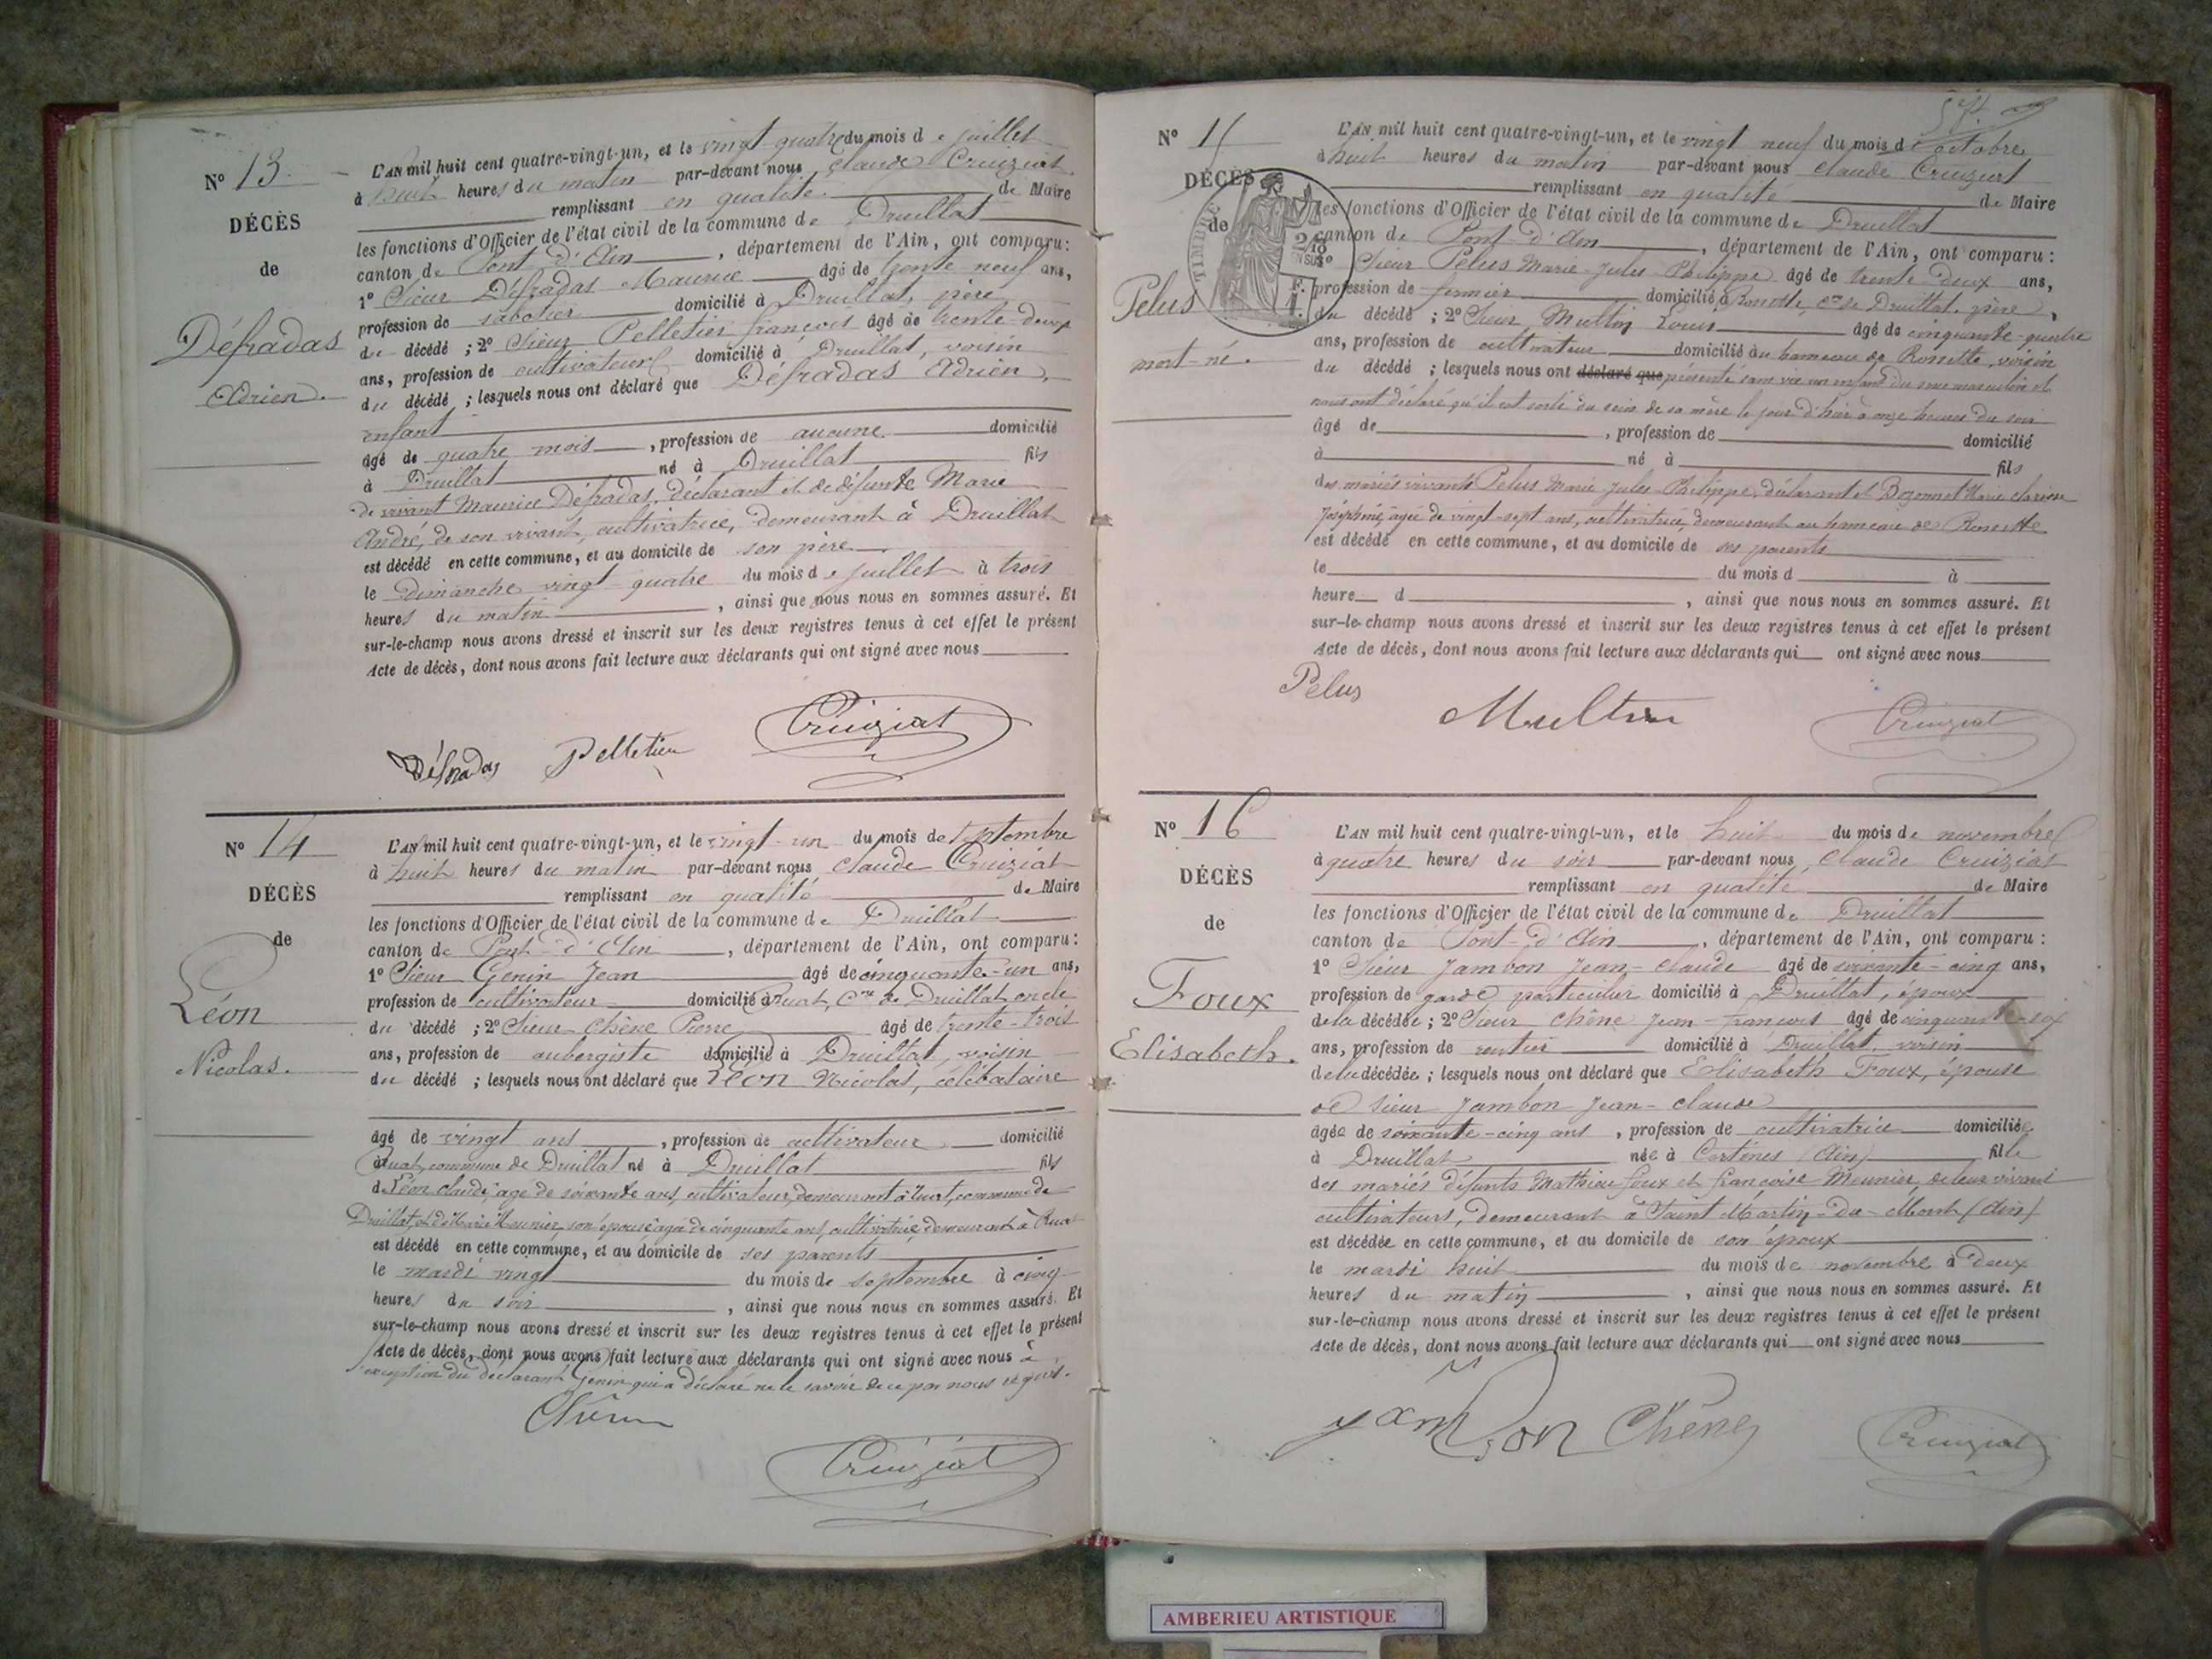 N° 13
DÉCÈS
de
Défradas
Adrien.
L'AN mil huit cent quatre-vingt-un, et le vingt quatre du mois de juillet
à huit heures du matin par-devant nous Claude Cruiziat
remplissant en qualité de Maire
les fonctions d'Officier de l'état civil de la commune de Druillat
canton de Pont d'Ain, département de l'Ain, ont comparu:
1° Sieur Défradas Maurice âgé de trente neuf ans,
profession de sabotier domicilié à Druillat, père
du décédé ; 2° Sieur Pelletier françois âgé de trente-deux
ans, profession de cultivateur domicilié à Druillat, voisin
du décédé ; lesquels nous ont déclaré que Défradas Adrien,
enfant
âgé de quatre mois, profession de aucune domicilié
à Druillat né à Druillat fils
de vivant Maurice Défradas, déclarant et de défunte Marie
André, de son vivant, cultivatrice, demeurant à Druillat
est décédé en cette commune, et au domicile de son père
le dimanche vingt quatre du mois de juillet à trois
heures du matin, ainsi que nous nous en sommes assuré. Et
sur-le-champ nous avons dressé et inscrit sur les deux registres tenus à cet effet le présent
Acte de décès, dont nous avons fait lecture aux déclarants qui ont signé avec nous
Défradas Pelletier Cruiziat
N° 14
DÉCÈS
de
Léon
Nicolas.
L'AN mil huit cent quatre-vingt-un, et le vingt-un du mois de septembre
à huit heures du matin par-devant nous Claude Cruiziat
remplissant en qualité de Maire
les fonctions d'Officier de l'état civil de la commune de Druillat
canton de Pont-d'Ain, département de l'Ain, ont comparu:
1° Sieur Genin Jean âgé de cinquante-un ans,
profession de cultivateur domicilié à Ruat, Cne de Druillat oncle
du décédé ; 2° Sieur Chêne Pierre âgé de trente-trois
ans, profession de aubergiste domicilié à Druillat, voisin
du décédé ; lesquels nous ont déclaré que Léon Nicolas, célibataire
âgé de vingt ans, profession de cultivateur domicilié
à Ruat, commune de Druillat né à Druillat fils
de Léon claude, âgé de soixante ans, cultivateur, demeurant à Ruat, commune de
Druillat, et de Marie Meunier, son épouse, âgée de cinquante ans, cultivatrice, demeurant à Ruat
est décédé en cette commune, et au domicile de ses parents
le mardi vingt du mois de septembre à cinq
heures du soir, ainsi que nous nous en sommes assuré. Et
sur-le-champ nous avons dressé et inscrit sur les deux registres tenus à cet effet le présent
Acte de décès, dont nous avons fait lecture aux déclarants qui ont signé avec nous à
l'exception du déclarant Genin qui a déclaré ne le savoir de ce par nous requis.
Chêne
Cruiziat
N° 15
DÉCÈS
de
TIMBRE
Pelus
mort-né.
L'AN mil huit cent quatre-vingt-un, et le vingt neuf du mois d'octobre
à huit heures du matin par-devant nous Claude Cruiziat
remplissant en qualité de Maire
les fonctions d'Officier de l'état civil de la commune de Druillat
canton de Pont-d'Ain, département de l'Ain, ont comparu:
1° Sieur Pelus Marie-Jules-Philippe âgé de trente deux ans,
profession de fermier domicilié à Rossette, Cne de Druillat, père,
du décédé ; 2° Sieur Multin Louis âgé de cinquante-quatre
ans, profession de cultivateur domicilié au hameau de Rossette, voisin
du décédé ; lesquels nous ont déclaré que présenté sans vie un enfant du sexe masculin et
nous ont déclaré qu'il est sorti du sein de sa mère le jour d'hier à onze heures du soir
âgé de, profession de domicilié
à né à fils
des mariés vivants Pelus Marie Jules Philippe, déclarant et Bozonnet Marie clarisse
Joséphine, âgée de vingt-sept ans, cultivatrice, demeurant au hameau de Rossette
est décédé en cette commune, et au domicile de ses parents
le du mois d à
heure d, ainsi que nous nous en sommes assuré. Et
sur-le-champ nous avons dressé et inscrit sur les deux registres tenus à cet effet le présent
Acte de décès, dont nous avons fait lecture aux déclarants qui ont signé avec nous
Pelus Multin Cruiziat
N° 16
DÉCÈS
de
Foux
Elisabeth.
L'AN mil huit cent quatre-vingt-un, et le huit du mois de novembre
à quatre heures du soir par-devant nous, Claude Cruiziat
remplissant en qualité de Maire
les fonctions d'Officier de l'état civil de la commune de Druillat
canton de Pont-d'Ain, département de l'Ain, ont comparu:
1° Sieur Jambon Jean-Claude âgé de soixante-cinq ans,
profession de garde particulier domicilié à Druillat, époux
de la décédée ; 2° Sieur Chêne Jean-françois âgé de cinquante-six
ans, profession de rentier domicilié à Druillat, voisin
de la décédée ; lesquels nous ont déclaré que Elisabeth Foux, épouse
de sieur Jambon Jean-claude
âgée de soixante-cinq ans, profession de cultivatrice domiciliée
à Druillat née à Certines (Ain) fille
des mariés défunts Mathieu Foux et françoise Meunier, de leur vivant
cultivateurs, demeurant à Saint Martin-du-Mont (Ain)
est décédée en cette commune, et au domicile de son époux
le mardi huit du mois de novembre à deux
heures du matin, ainsi que nous nous en sommes assuré. Et
sur-le-champ nous avons dressé et inscrit sur les deux registres tenus à cet effet le présent
Acte de décès, dont nous avons fait lecture aux déclarants qui ont signé avec nous
Jambon Chêne Cruiziat
AMBERIEU ARTISTIQUE